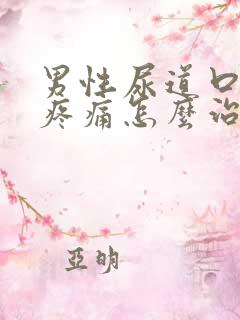 男性尿道口
疼痛怎麼治
亞明